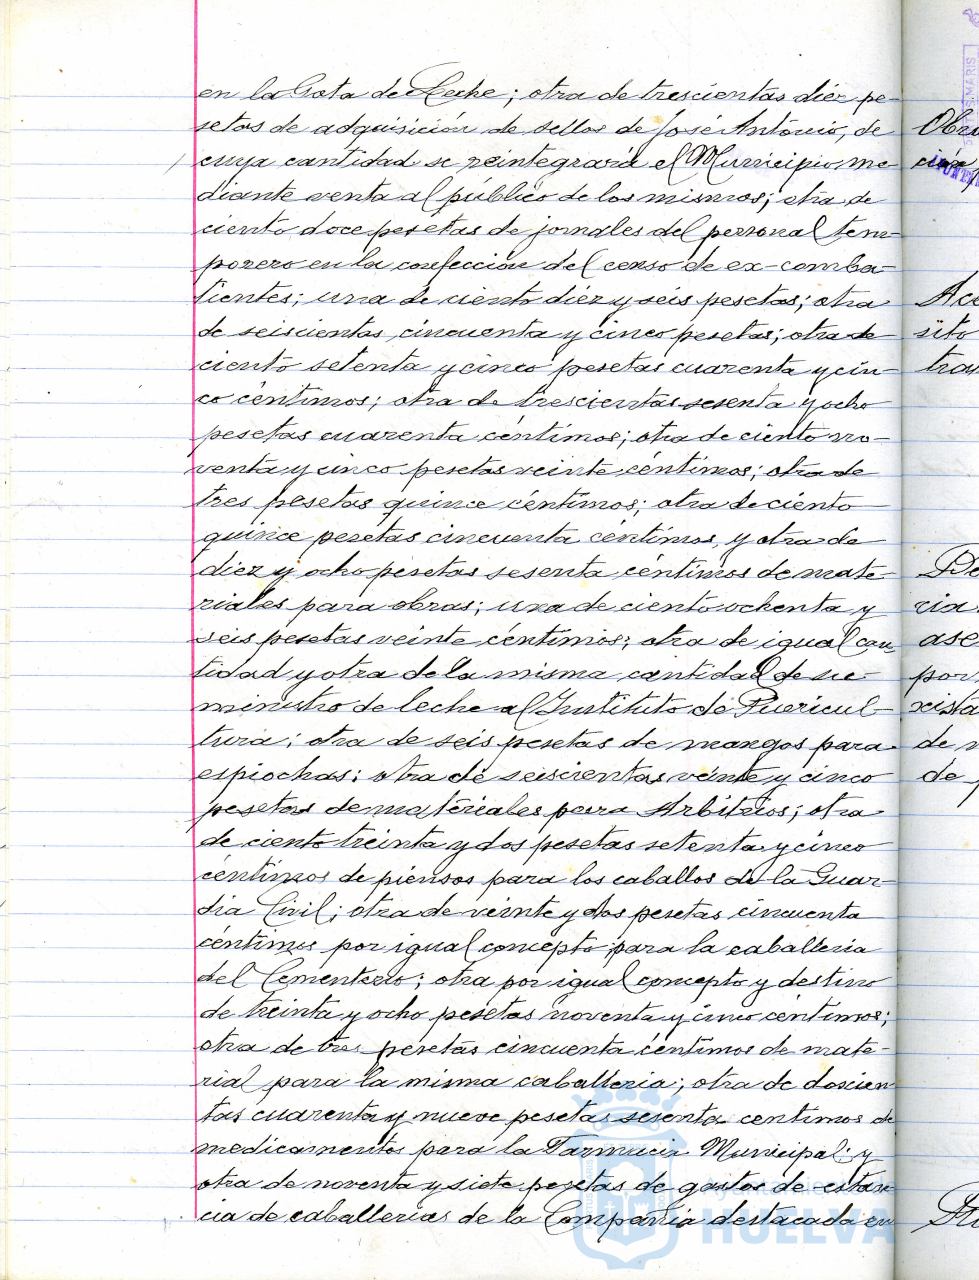 en la Gota de Leche; otra de trescientas diez pe-
setas de adquisición de sellos de José Antonio, de
cuya cantidad se reintegrará el Municipio, me-
diante venta al público de los mismos; otra de
ciento doce pesetas de jornales del personal tem-
porero en la confección del censo de ex-comba-
tientes; una de ciento diez y seis pesetas; otra
de seiscientas cincuenta y cinco pesetas; otra de
ciento setenta y cinco pesetas cuarenta y cin-
co céntimos; otra de trescientas sesenta y ocho
pesetas cuarenta céntimos; otra de ciento no-
venta y cinco pesetas veinte céntimos; otra de
tres pesetas quince céntimos; otra de ciento
quince pesetas cincuenta céntimos, y otra de
diez y ocho pesetas sesenta céntimos de mate-
riales para obras; una de ciento ochenta y
seis pesetas veinte céntimos; otra de igual can-
tidad y otra de la misma cantidad de su-
ministro de leche al Instituto de Puericul-
tura; otra de seis pesetas de mangos para
espiochas; otra de seiscientas veinte y cinco
pesetas de materiales para Arbitrios; otra
de ciento treinta y dos pesetas setenta y cinco
céntimos de piensos para los caballos de la Guar-
dia Civil; otra de veinte y dos pesetas cincuenta
céntimos por igual concepto para la caballeria
del Cementerio; otra por igual concepto y destino
de treinta y ocho pesetas noventa y cinco céntimos;
otra de tres pesetas cincuenta céntimos de mate-
rial para la misma caballeria; otra de doscien-
tas cuarenta y nueve pesetas sesenta centimos de
medicamentos para la Farmacia Municipal; y
otra de noventa y siete pesetas de gastos de estan-
cia de caballerias de la Compañia destacada en
Ayuntamiento
HUELVA